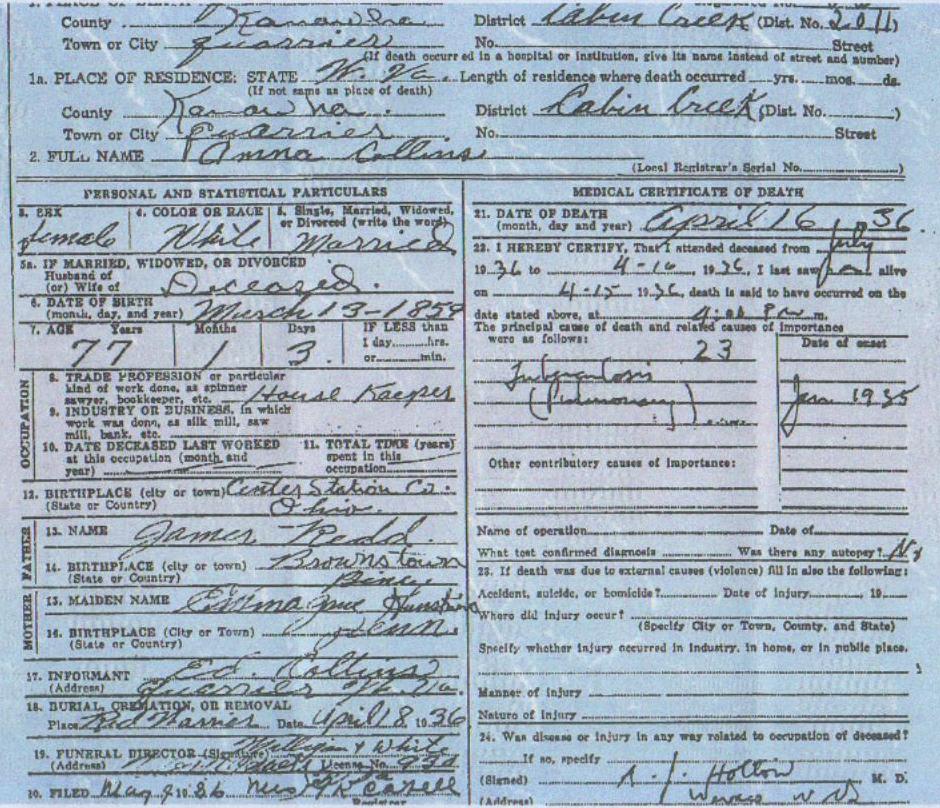 County Kanawha District Cabin Creek (Dist. No. 2011)
Town or City Quarrier No. Street
(If death occurred in a hospital or institution, give its name instead of street and number)
1a. PLACE OF RESIDENCE: STATE W. Va. Length of residence where death occurred yrs. mos. ds.
(If not same as place of death)
County Kanawha. District Cabin Creek (Dist. No. )
Town or City Quarrier No. Street
2. FULL NAME Anna Collins
(Local Registrar's Serial No. )
PERSONAL AND STATISTICAL PARTICULARS
3. SEX 4. COLOR OR RACE 5. Single, Married, Widowed, or Divorced (write the word)
female White Married
5a. IF MARRIED, WIDOWED, OR DIVORCED
Husband of
(or) Wife of Deceased.
6. DATE OF BIRTH
(month, day, and year) March 13-1859
7. AGE Years Months Days IF LESS than
1 day hrs.
or min.
77 1 3.
OCCUPATION
8. TRADE PROFESSION or particular
kind of work done, as spinner
sawyer, bookkeeper, etc. House Kaeper
9. INDUSTRY OR BUSINESS, in which
work was done, as silk mill, saw
mill, bank, etc.
10. DATE DECEASED LAST WORKED
at this occupation (month and
year)
11. TOTAL TIME (years)
spent in this
occupation
12. BIRTHPLACE (city or town) Center Station Co.
(State or Country) Ohio.
FATHER
13. NAME James Redd
14. BIRTHPLACE (city or town) Brownstown
(State or Country)
MOTHER
15. MAIDEN NAME Emma
16. BIRTHPLACE (City or Town) Penn.
(State or Country)
17. INFORMANT Ed. Collins
(Address) Quarrier W. Va.
18. BURIAL, CREMATION, OR REMOVAL
Place Red Warrier Date April 18 1936
19. FUNERAL DIRECTOR (Signature) Milligan & White
(Address) License No.
20. FILED May 9 1936 Mrs
Registrar
MEDICAL CERTIFICATE OF DEATH
21. DATE OF DEATH
(month, day and year) April 16 36
22. I HEREBY CERTIFY, That I attended deceased from July
1936 to 4-16, 1936, I last saw alive
on 4-15 1936, death is said to have occurred on the
date stated above, at P m.
The principal cause of death and related causes of importance
were as follows: Date of onset
23
Tuberculosis
(Pulmonary) Jan. 1935
Other contributory causes of importance:
Name of operation Date of
What test confirmed diagnosis Was there any autopsy? No
23. If death was due to external causes (violence) fill in also the following:
Accident, suicide, or homicide? Date of injury 19
Where did injury occur?
(Specify City or Town, County, and State)
Specify whether injury occurred in industry, in home, or in public place.
Manner of injury
Nature of injury
24. Was disease or injury in any way related to occupation of deceased?
If so, specify
(Signed) M. D.
(Address)